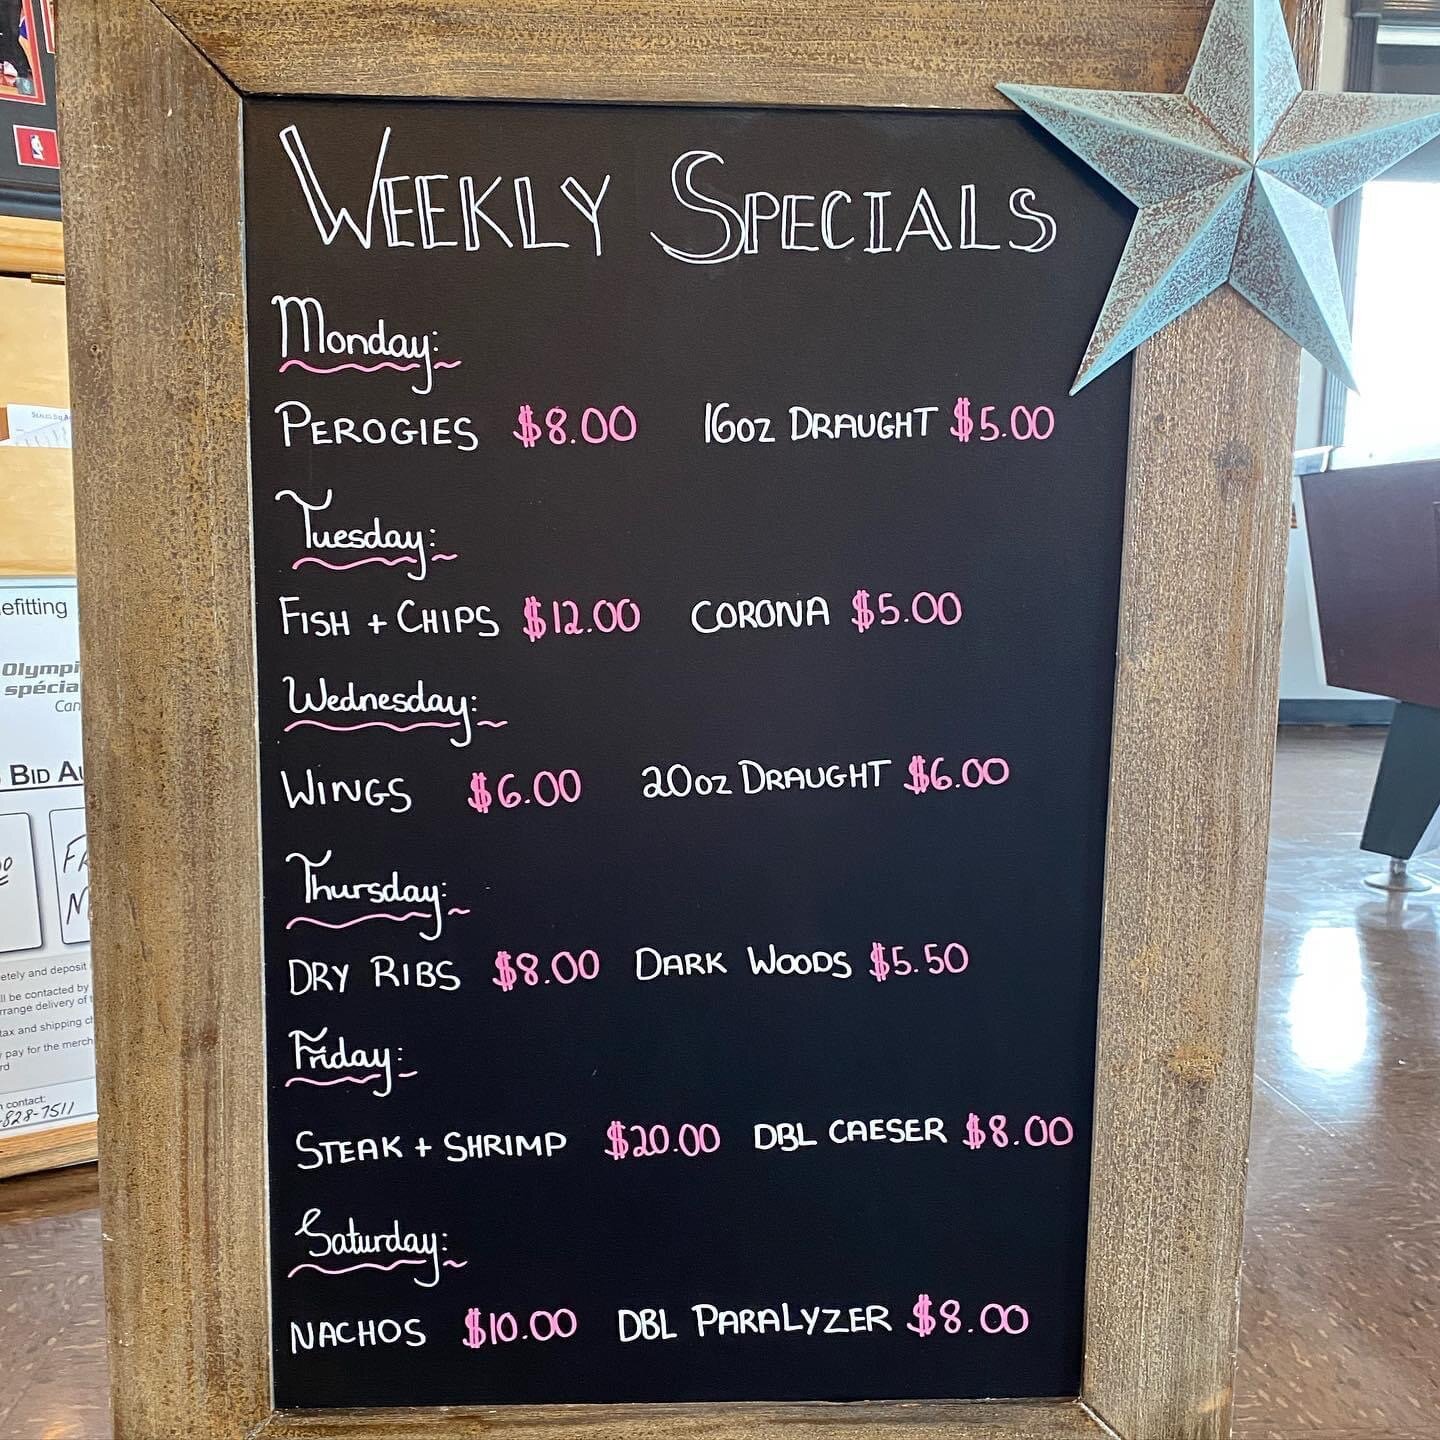 WEEKLY SPECIALS
Monday:
PEROGIES $8.00 16oz DRAUGHT $5.00
Tuesday:
FISH + CHIPS $12.00 CORONA $5.00
Wednesday:
WINGS $6.00 20oz DRAUGHT $6.00
Thursday:
DRY RIBS $8.00 DARK WOODS $5.50
Friday:
STEAK + SHRIMP $20.00 DBL CAESER $8.00
Saturday:
NACHOS $10.00 DBL PARALYZER $8.00
efitting
Olympi
spécia
Can
BID AU
etely and deposit
ll be contacted by
rrange delivery of t
tax and shipping ch
pay for the merch
rd
contact:
-828-7511